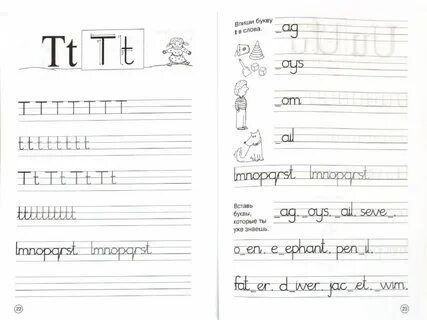 Tt Tt
T T T T T T T
t t t t t t t t
Tt Tt Tt Tt
lmnopqrst. lmnopqrst.
22
Впиши букву
t в слова.
_ag
_oys
_om
_ail
lmnopqrst. lmnopqrst.
Вставь
буквы,
которые ты
уже знаешь.
_ag. _oys. _ail. seve_.
o_en. e_ephant. pen_il.
fat_er. d_wer. jac_et. _wim.
23